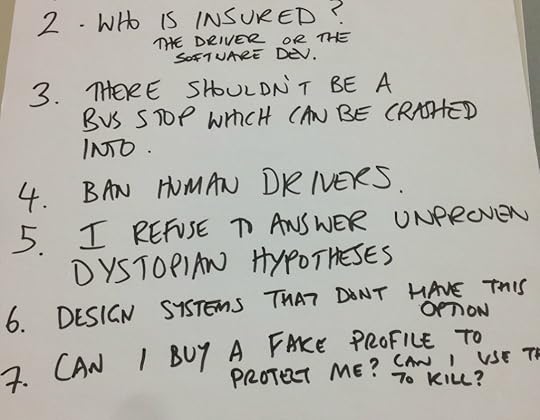 2 - WHO IS INSURED?
THE DRIVER OR THE
SOFTWARE DEV.
3. THERE SHOULDN'T BE A
BUS STOP WHICH CAN BE CRASHED
INTO.
4. BAN HUMAN DRIVERS.
5. I REFUSE TO ANSWER UNPROVEN
DYSTOPIAN HYPOTHESES
6. DESIGN SYSTEMS THAT DON'T HAVE THIS
OPTION
7. CAN I BUY A FAKE PROFILE TO
PROTECT ME? CAN I USE
TO KILL?